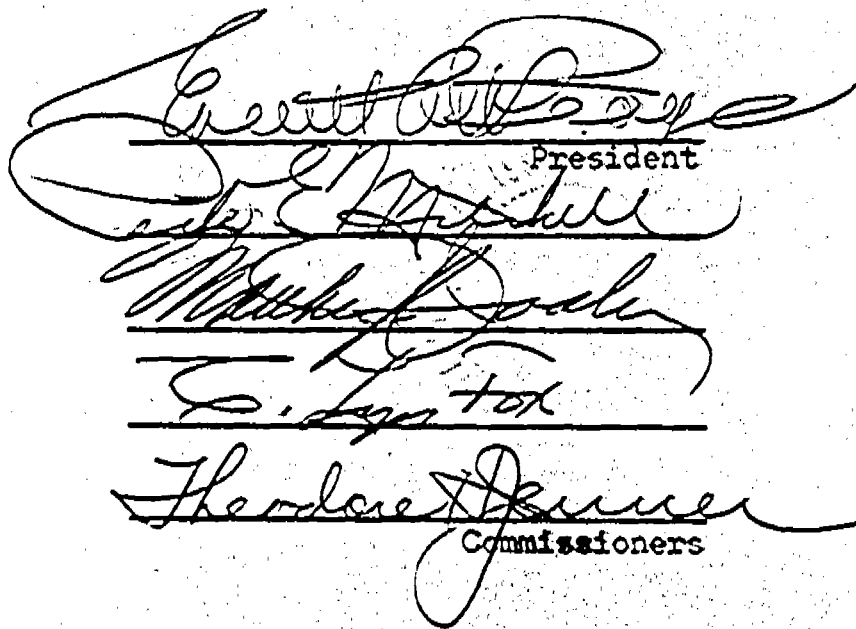 Everett C. McKeage
President
Peter E. Mitchell
Matthew J. Dooley
C. Lyn Fox
Theodore Jenner
Commissioners